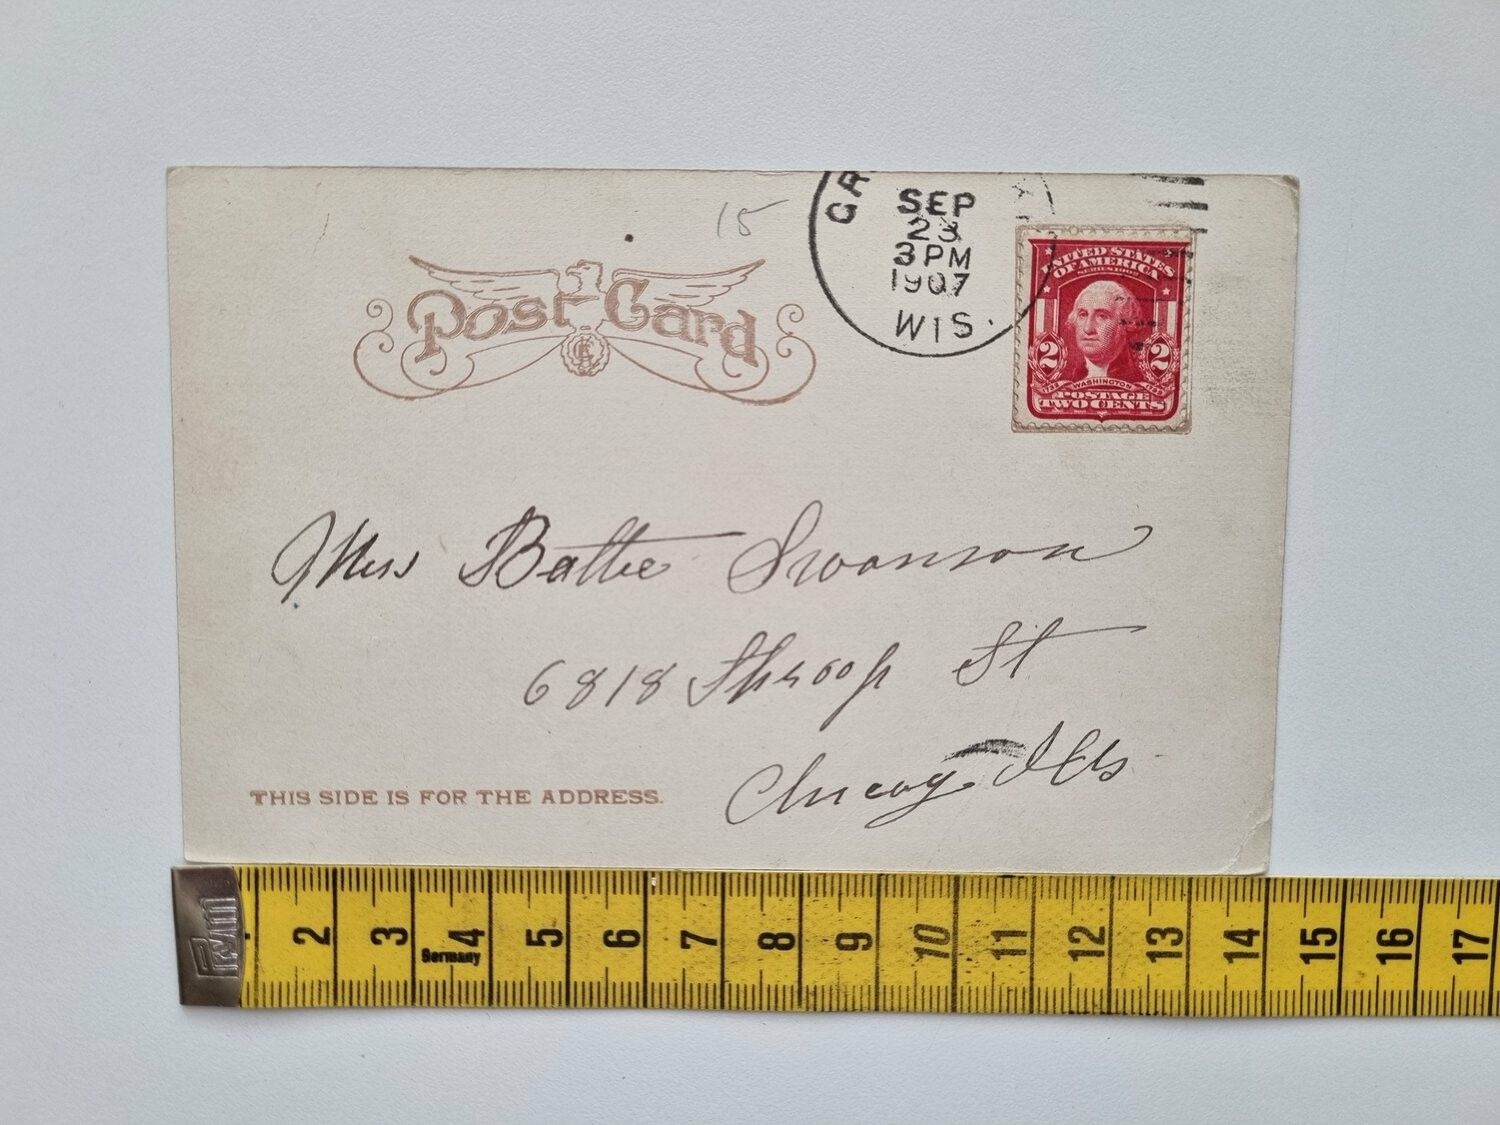 15
GA
SEP
23
3 PM
1907
WIS.
Post Card
UNITED STATES
OF AMERICA
SERIES 1902
2 2
1732 WASHINGTON 1799
POSTAGE
TWO CENTS
Miss Battie Swanson
6818 Throop St
Chicago Ills
THIS SIDE IS FOR THE ADDRESS.
Prym
2 3 4 5 6 7 8 9 10 11 12 13 14 15 16 17
Germany